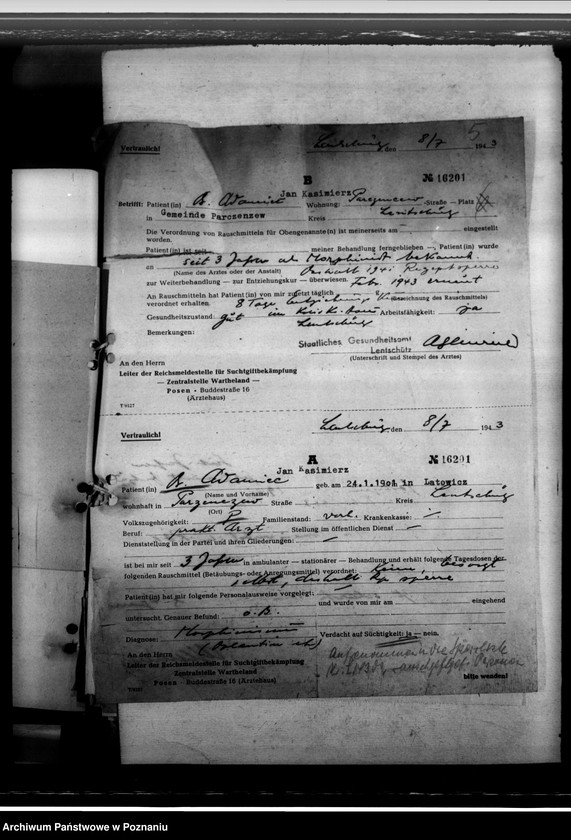 5
Vertraulich! den 8/7 194 3
B № 16201
Jan Kasimierz
Betrifft: Patient(in) Adamiec Wohnung: Parzenczew -Straße – Platz
in Gemeinde Parozenzew Kreis Lentschütz
Die Verordnung von Rauschmitteln für Obengenannte(n) ist meinerseits am eingestellt
worden.
Patient(in) ist seit meiner Behandlung ferngeblieben —, Patient(in) wurde
an seit 3 Jahren als Morphinist bekannt.
(Name des Arztes oder der Anstalt) Deshalb 1941 Rezeptsperre
zur Weiterbehandlung — zur Entziehungskur — überwiesen. Febr. 1943 erneut
An Rauschmitteln hat Patient(in) von mir zuletzt täglich (Bezeichnung des Rauschmittels)
verordnet erhalten. 8 Tage
Gesundheitszustand: gut im Arbeitsfähigkeit: ja
Lentschütz
Bemerkungen:
Staatliches Gesundheitsamt
Lentschütz
(Unterschrift und Stempel des Arztes)
An den Herrn
Leiter der Reichsmeldestelle für Suchtgiftbekämpfung
— Zentralstelle Wartheland —
Posen • Buddestraße 16
(Ärztehaus)
Vertraulich! den 8/7 194 3
A № 16201
Jan Kasimierz
Patient(in) Adamiec geb. am 24.1.1901 in Latowicz
(Name und Vorname)
wohnhaft in Parzenczew Straße Kreis Lentschütz
(Ort)
Volkszugehörigkeit: P Familienstand: verh. Krankenkasse:
Beruf: prakt. Arzt Stellung im öffentlichen Dienst
Dienststellung in der Partei und ihren Gliederungen:
ist bei mir seit 3 Jahren in ambulanter — stationärer — Behandlung und erhält folgende Tagesdosen der
folgenden Rauschmittel (Betäubungs- oder Anregungsmittel) verordnet: keine, besorgt
selbst, deshalb sperre
Patient(in) hat mir folgende Personalausweise vorgelegt:
und wurde von mir am eingehend
untersucht. Genauer Befund: o.B.
Diagnose: Morphinismus Verdacht auf Süchtigkeit: ja — nein.
An den Herrn
Leiter der Reichsmeldestelle für Suchtgiftbekämpfung
Zentralstelle Wartheland
Posen • Buddestraße 16 (Ärztehaus)
bitte wenden!
Archiwum Państwowe w Poznaniu